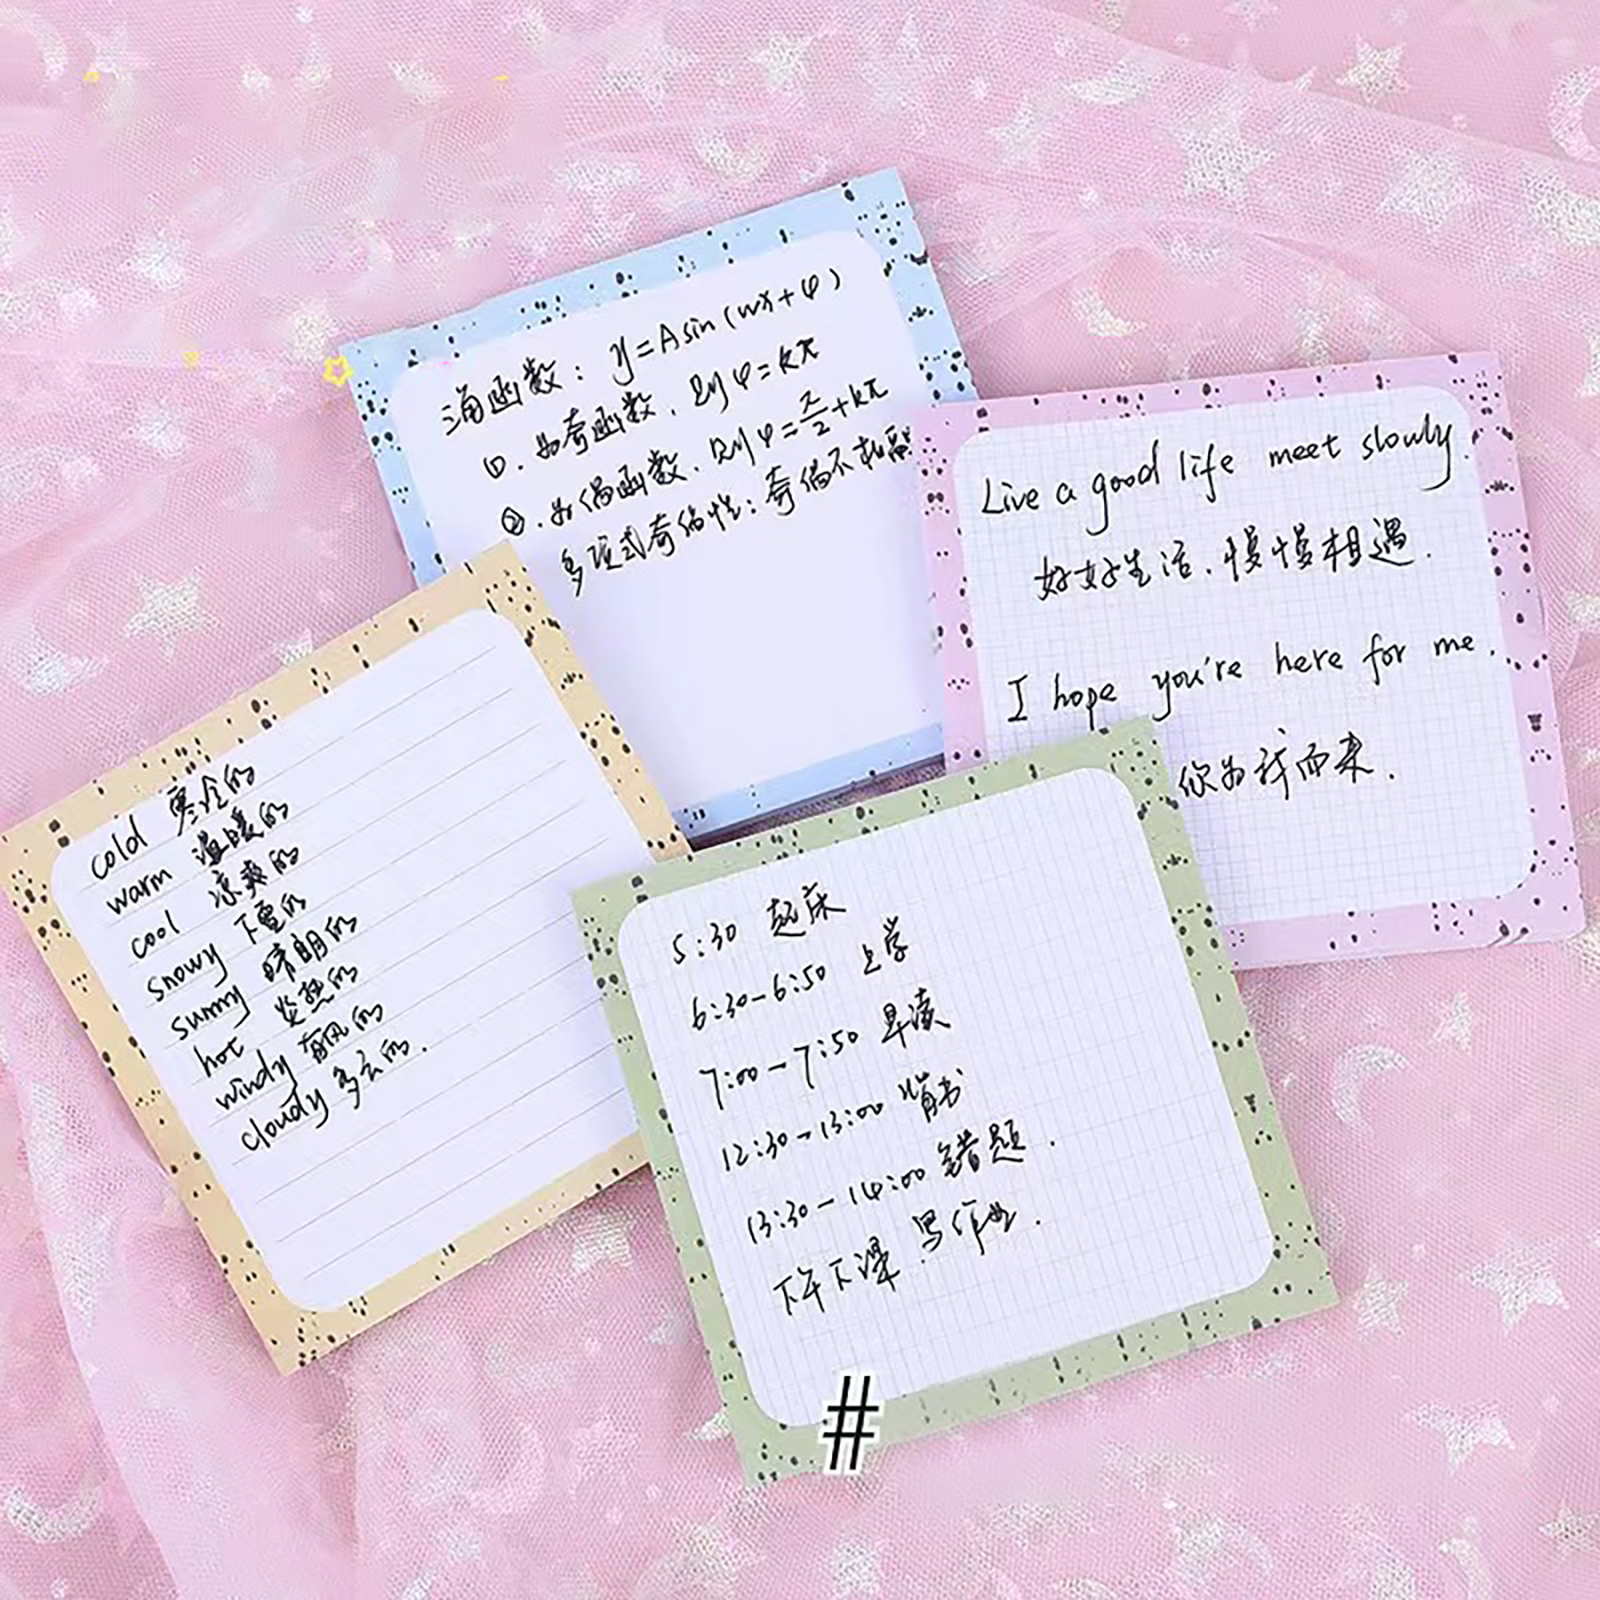 三角函数：y=Asin(wx+φ)
①.为奇函数，则φ=kπ
②.为偶函数，则φ=π/2+kπ
多项式奇偶性：奇偶不相
Live a good life meet slowly.
好好生活，慢慢相遇．
I hope you're here for me.
你为我而来．
cold 寒冷的
warm 温暖的
cool 凉爽的
snowy 下雪的
sunny 晴朗的
hot 炎热的
windy 有风的
cloudy 多云的．
5:30 起床
6:30-6:50 上学
7:00-7:50 早读
12:30-13:00 背书
13:30-14:00 错题．
下午下课．写作业．
#